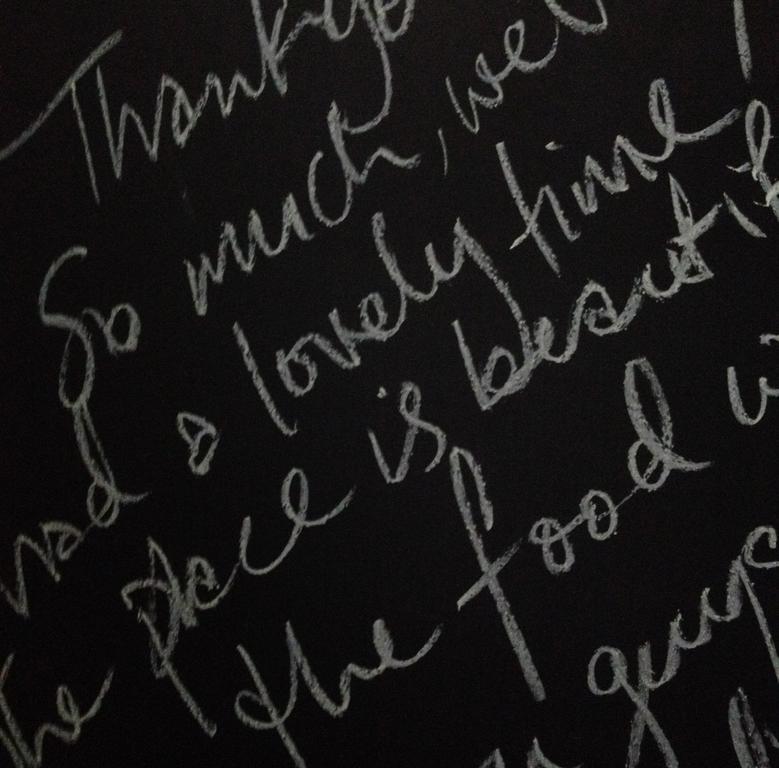 Thank yo
So much, we
had a lovely time
he place is beautif
the food
guys